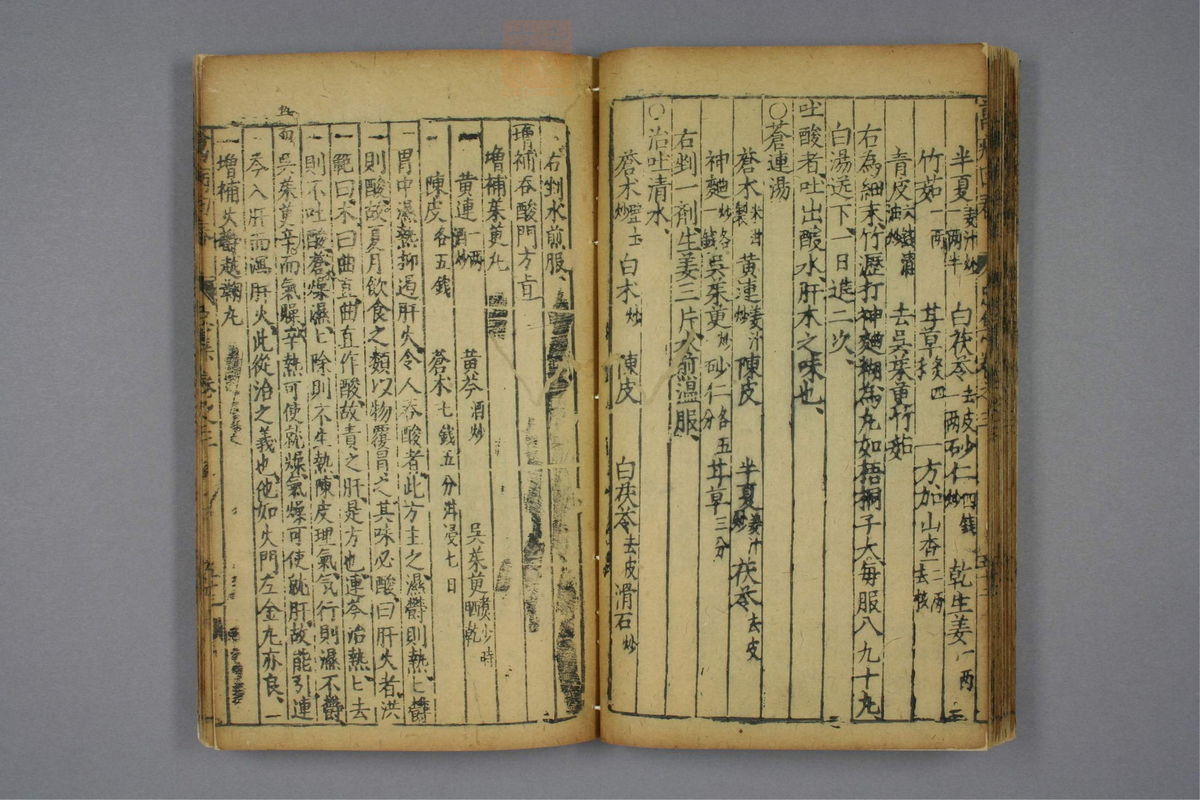 半夏姜汁炒一兩半 白茯苓去皮一兩 砂仁炒四錢 乾生姜一兩
竹茹一兩 甘草炙四 一方加山查去核二兩
青皮去穰六錢油炒 去吳茱萸竹茹
右為細末竹瀝打神麯糊為丸如梧桐子大每服八九十丸
白湯送下一日進二次
吐酸者吐出酸水肝木之味也
○蒼連湯
蒼朮米泔製 黃連姜汁炒 陳皮 半夏姜汁炒 茯苓去皮
神麯炒各一錢 吳茱萸炒 砂仁各五分 甘草三分
右剉一劑生姜三片水煎溫服
○治吐清水
蒼朮壁土炒 白朮炒 陳皮 白茯苓去皮 滑石炒
右剉水煎服
增補吞酸門方
增補茱萸丸
一黃連一兩酒炒 黃芩酒炒 吳茱萸煮少時晒乾
一陳皮各五錢 蒼朮七錢五分泔浸七日
一胃中濕熱抑遏肝火令人吞酸者此方主之濕欝則熱〻欝
則酸故夏月飲食之類以物覆冒之其味必酸曰肝火者洪
範曰木曰曲直曲直作酸故責之肝是方也連芩治熱〻去
則不吐酸蒼朮燥濕〻除則不生熱陳皮理氣氣行則濕不欝
吳茱萸辛而氣臊辛熱可使就燥氣臊可使就肝故能引連
芩入肝而瀉肝火此從治之義也他如火門左金丸亦良
一增補火欝越鞠丸